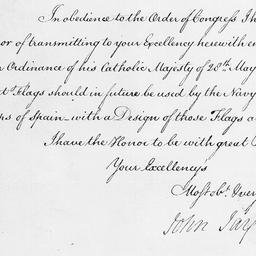 In obedience to the Order of Congress I h
or of transmitting to your Excellency herewith en
Ordinance of his Catholic Majesty of 28th. May
t Flags should in future be used by the Navy
ns of Spain - with a Design of those Flags a
I have the Honor to be with great
Your Excellency's
Most obt. &very
John Jay